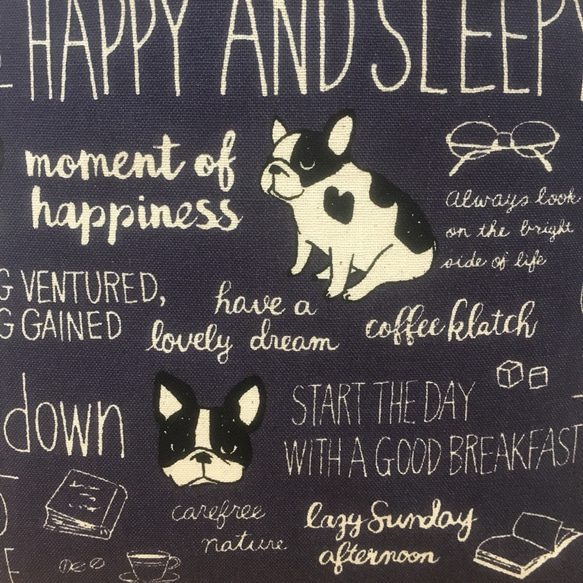 HAPPY AND SLEEPY
moment of
happiness
Always look
on the bright
side of life
G VENTURED,
G GAINED
have a
lovely dream
coffee klatch
down
START THE DAY
WITH A GOOD BREAKFAST
carefree
nature
lazy Sunday
afternoon